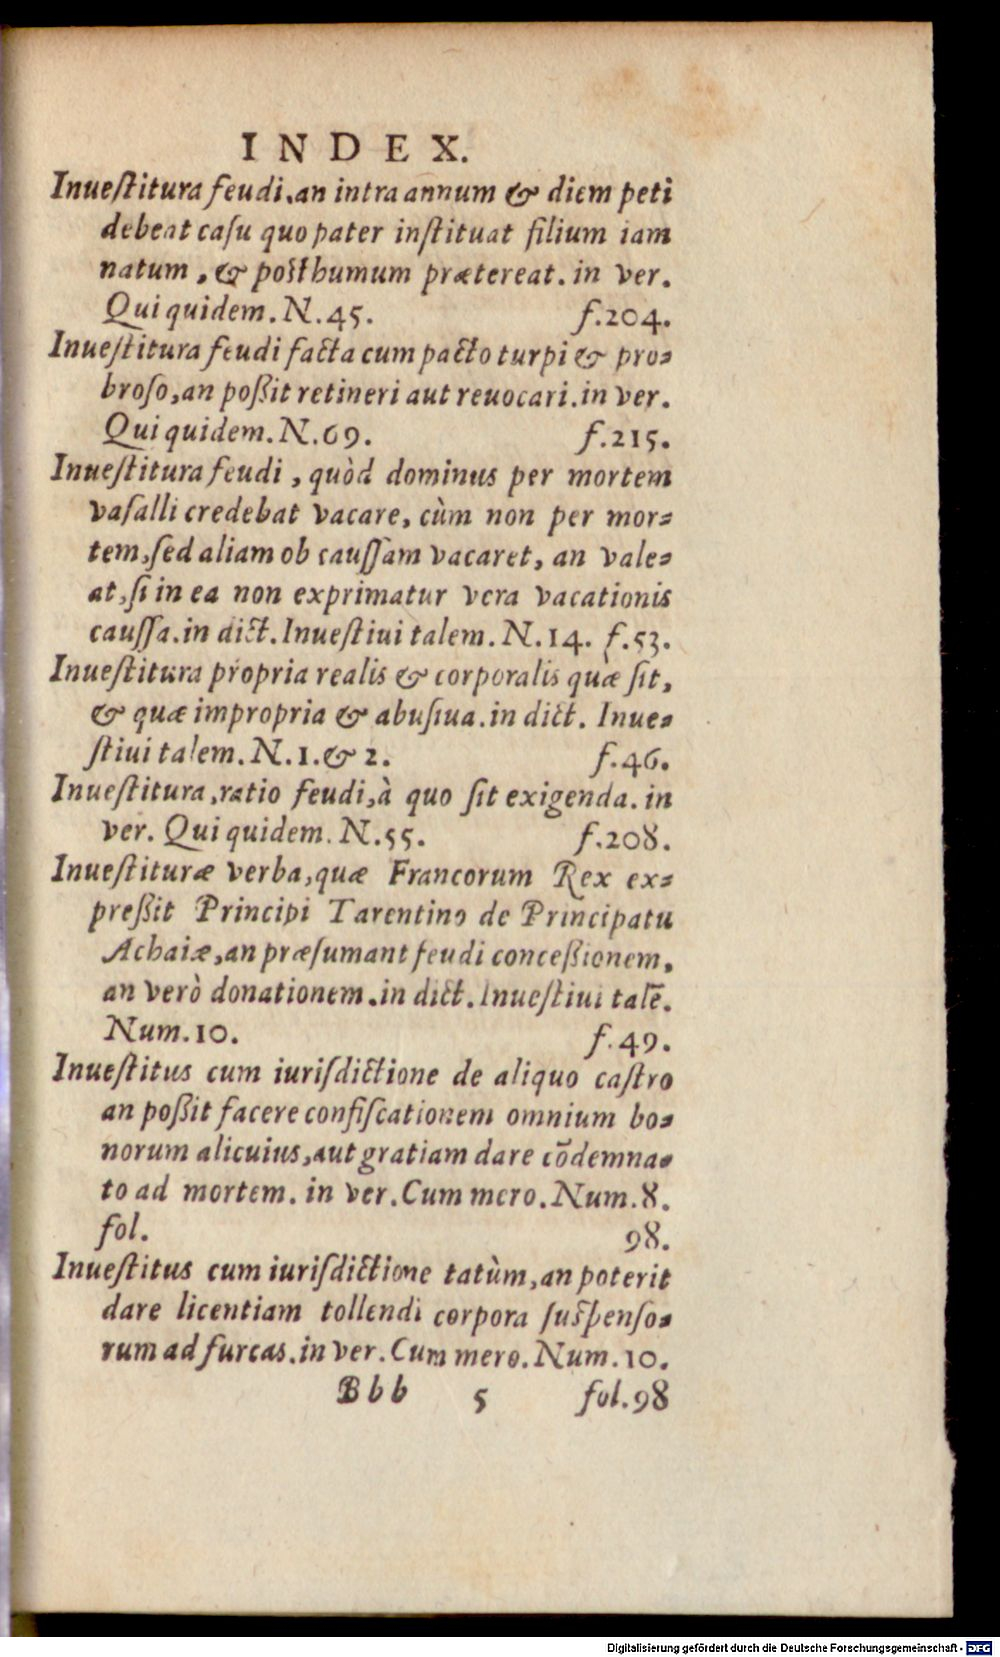 INDEX.
Inueſtitura feudi, an intra annum & diem peti
debeat caſu quo pater inſtituat filium iam
natum, & poſthumum prætereat. in ver.
Qui quidem. N. 45. f. 204.
Inueſtitura feudi facta cum pacto turpi & pro-
broſo, an poßit retineri aut reuocari. in ver.
Qui quidem. N. 69. f. 215.
Inueſtitura feudi, quòd dominus per mortem
vaſalli credebat vacare, cùm non per mor-
tem, ſed aliam ob cauſſam vacaret, an vale-
at, ſi in ea non exprimatur vera vacationis
cauſſa. in dict. Inueſtiui talem. N. 14. f. 53.
Inueſtitura propria realis & corporalis quæ ſit,
& quæ impropria & abuſiua. in dict. Inue-
ſtiui talem. N. 1. & 2. f. 46.
Inueſtitura, ratio feudi, à quo ſit exigenda. in
ver. Qui quidem. N. 55. f. 208.
Inueſtituræ verba, quæ Francorum Rex ex-
preßit Principi Tarentino de Principatu
Achaiæ, an præſumant feudi conceßionem,
an verò donationem. in dict. Inueſtiui talē.
Num. 10. f. 49.
Inueſtitus cum iuriſdictione de aliquo caſtro
an poßit facere confiſcationem omnium bo-
norum alicuius, aut gratiam dare cōdemna-
to ad mortem. in ver. Cum mero. Num. 8.
fol. 98.
Inueſtitus cum iuriſdictione tatùm, an poterit
dare licentiam tollendi corpora ſuſpenſo-
rum ad furcas. in ver. Cum mero. Num. 10.
Bbb 5 fol. 98
Digitalisierung gefördert durch die Deutsche Forschungsgemeinschaft - DFG